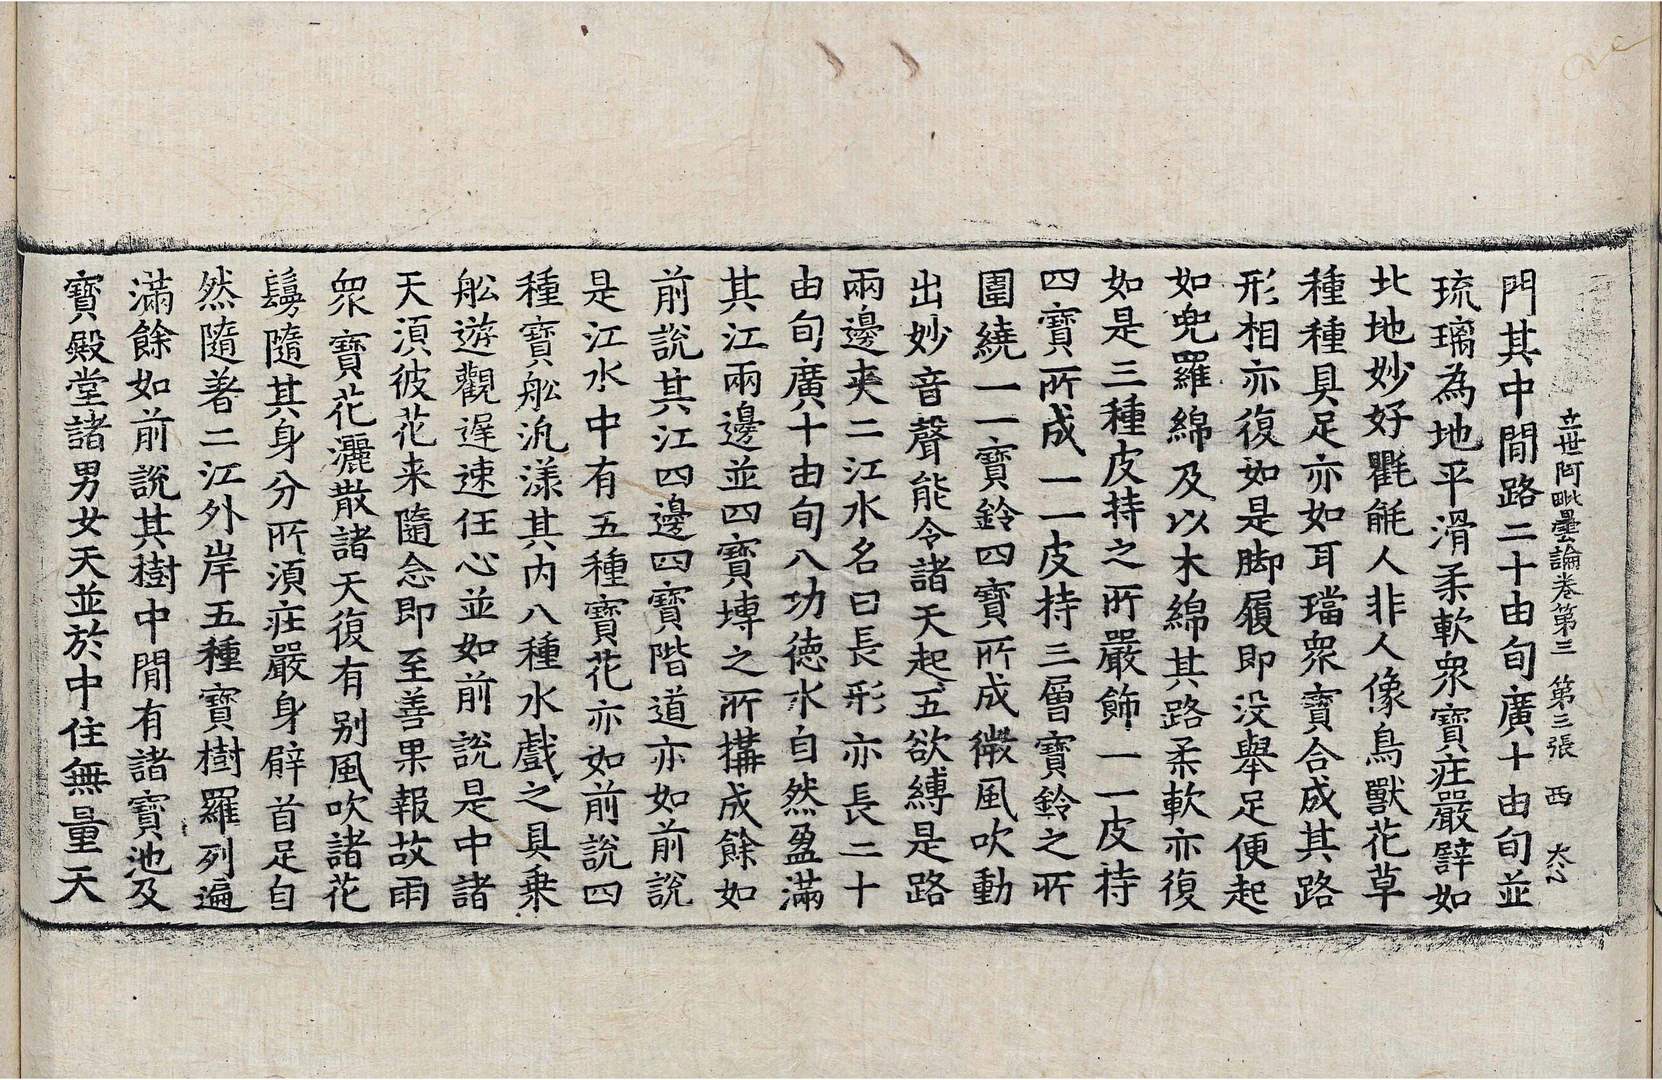 立世阿毗曇論卷第三 第三張 西 大心
門其中間路二十由旬廣十由旬並
琉璃為地平滑柔軟衆寶莊嚴譬如
北地妙好氍毹人非人像鳥獸花草
種種具足亦如耳璫衆寶合成其路
形相亦復如是脚履即没舉足便起
如兜羅綿及以木綿其路柔軟亦復
如是三種皮持之所嚴飾一一皮持
四寶所成一一皮持三層寶鈴之所
圍繞一一寶鈴四寶所成微風吹動
出妙音聲能令諸天起五欲縛是路
兩邊夾二江水名曰長形亦長二十
由旬廣十由旬八功德水自然盈滿
其江兩邊並四寶塼之所搆成餘如
前說其江四邊四寶階道亦如前說
是江水中有五種寶花亦如前說四
種寶舩汎漾其内八種水戲之具乗
舩遊觀遅速任心並如前說是中諸
天須彼花来隨念即至善果報故雨
衆寶花灑散諸天復有別風吹諸花
鬘隨其身分所須莊嚴身臂首足自
然隨著二江外岸五種寶樹羅列遍
滿餘如前說其樹中間有諸寶池及
寶殿堂諸男女天並於中住無量天